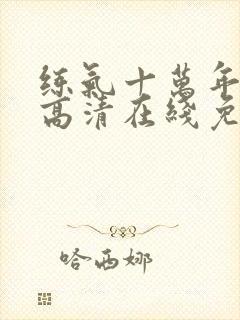 練氣十萬年
高清在綫免
哈西娜